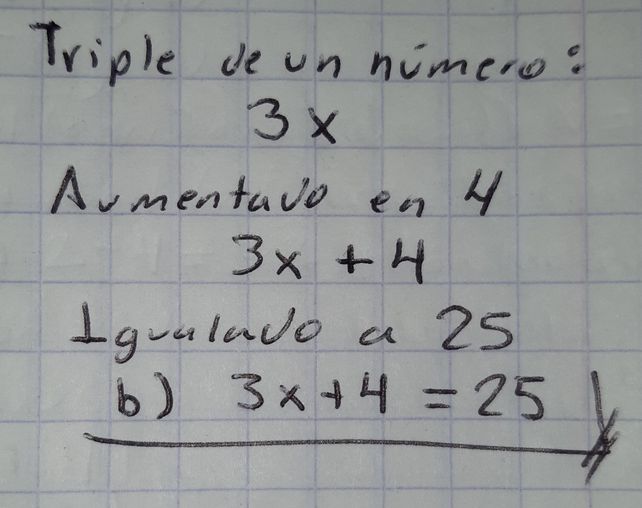 Triple de un número:
3x
Aumentado en 4
3x + 4
Igualado a 25
b) 3x+4 = 25